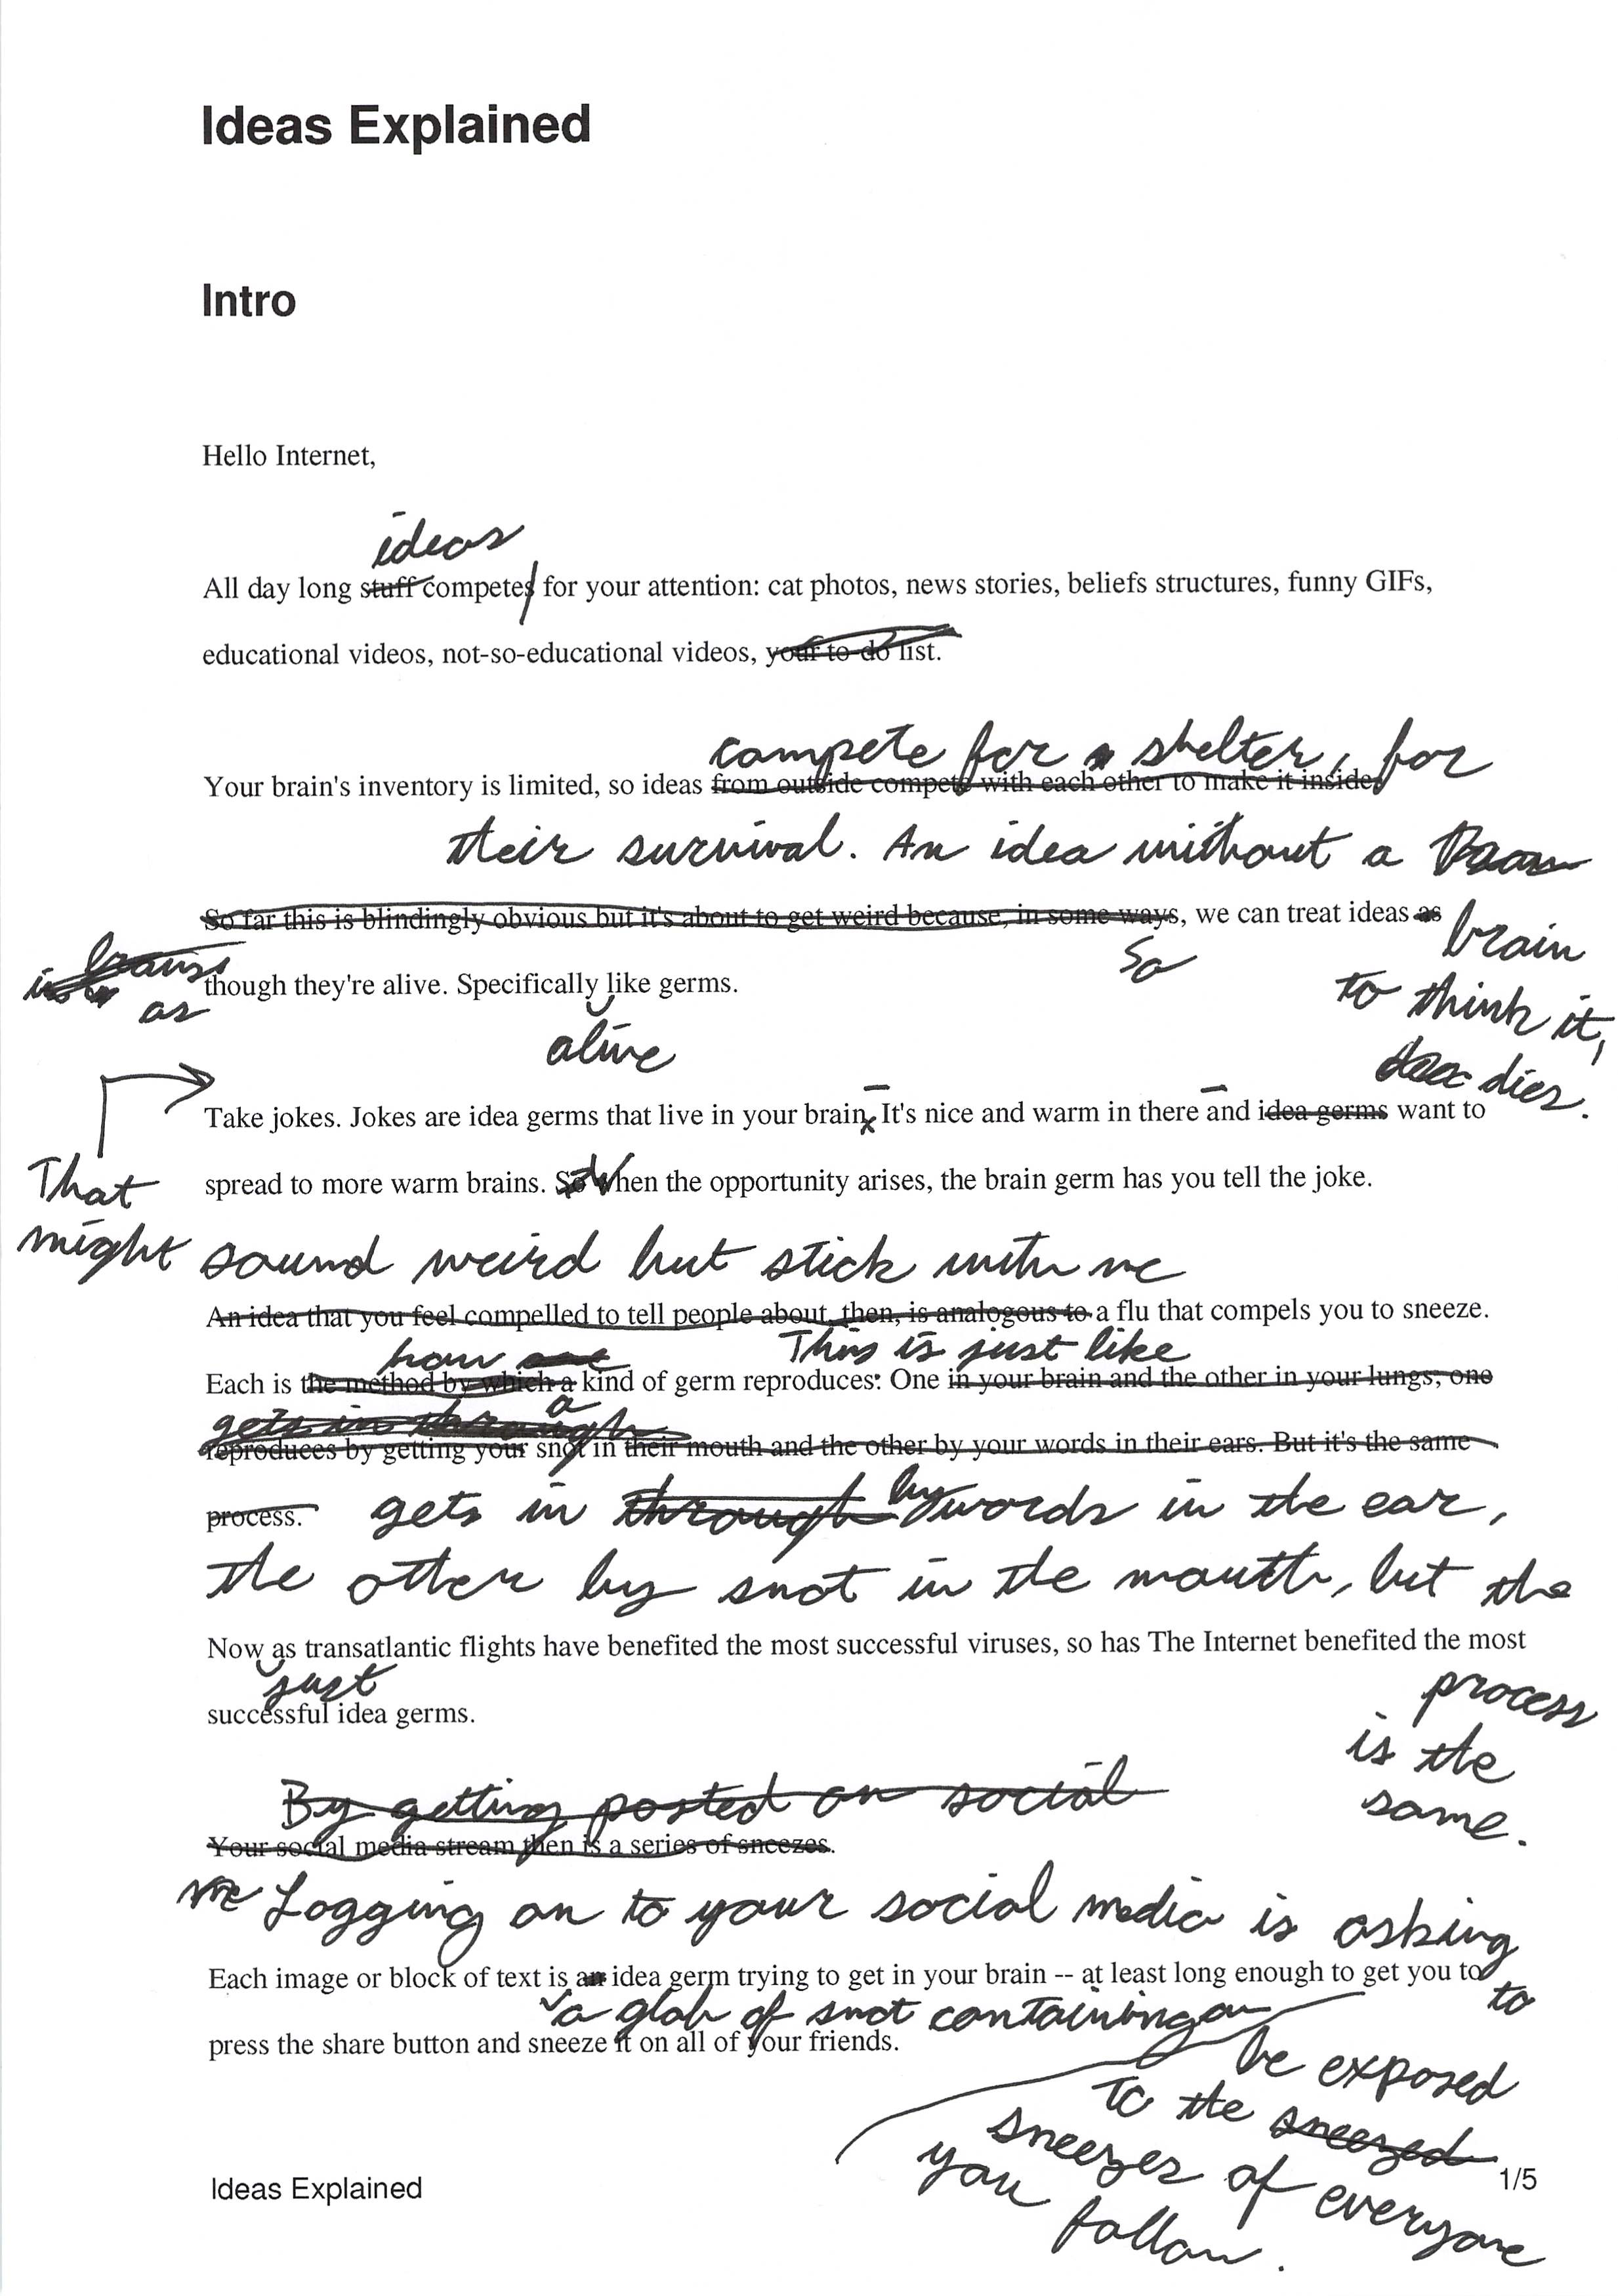 Ideas Explained
Intro
Hello Internet,
ideas
All day long stuff competes for your attention: cat photos, news stories, beliefs structures, funny GIFs,
educational videos, not-so-educational videos, your to-do list.
compete for shelter, for
Your brain's inventory is limited, so ideas from outside compete with each other to make it inside.
their survival. An idea without a
So far this is blindingly obvious but it's about to get weird because, in some ways, we can treat ideas as
brain
So
to think it,
dies.
brains
as
though they're alive. Specifically like germs.
alive
Take jokes. Jokes are idea germs that live in your brain. It's nice and warm in there and idea germs want to
spread to more warm brains. So When the opportunity arises, the brain germ has you tell the joke.
That
might sound weird but stick with me
An idea that you feel compelled to tell people about, then, is analogous to a flu that compels you to sneeze.
how This is just like
Each is the method by which a kind of germ reproduces: One in your brain and the other in your lungs; one
gets in through a
reproduces by getting your snot in their mouth and the other by your words in their ears. But it's the same
process. gets in through by words in the ear,
the other by snot in the mouth, but the
process
is the
same.
Now as transatlantic flights have benefited the most successful viruses, so has The Internet benefited the most
just
successful idea germs.
By getting posted on social
Your social media stream then is a series of sneezes.
Logging on to your social media is asking
to
be exposed
to the sneezed
sneezes of everyone
you follow.
Each image or block of text is an idea germ trying to get in your brain -- at least long enough to get you to
a glob of snot containing an
press the share button and sneeze it on all of your friends.
Ideas Explained
1/5